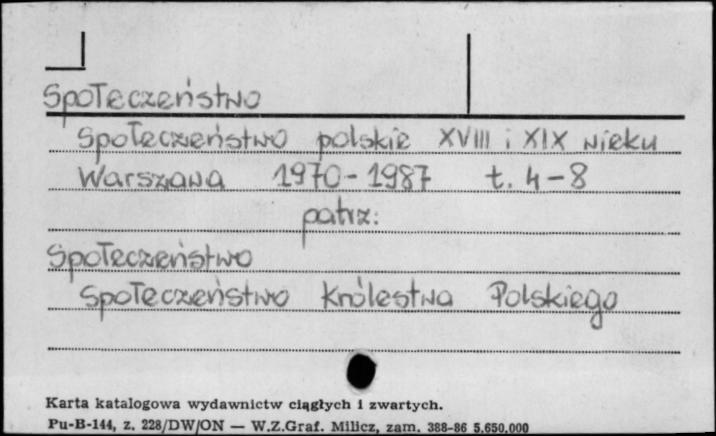 Społeczeństwo
Społeczeństwo polskie XVIII i XIX wieku
Warszawa 1970-1987 t. 4-8
patrz:
Społeczeństwo
Społeczeństwo Królestwa Polskiego
Karta katalogowa wydawnictw ciągłych i zwartych.
Pu-B-144, z. 228/DW/ON — W.Z.Graf. Milicz, zam. 388-86 5.650.000